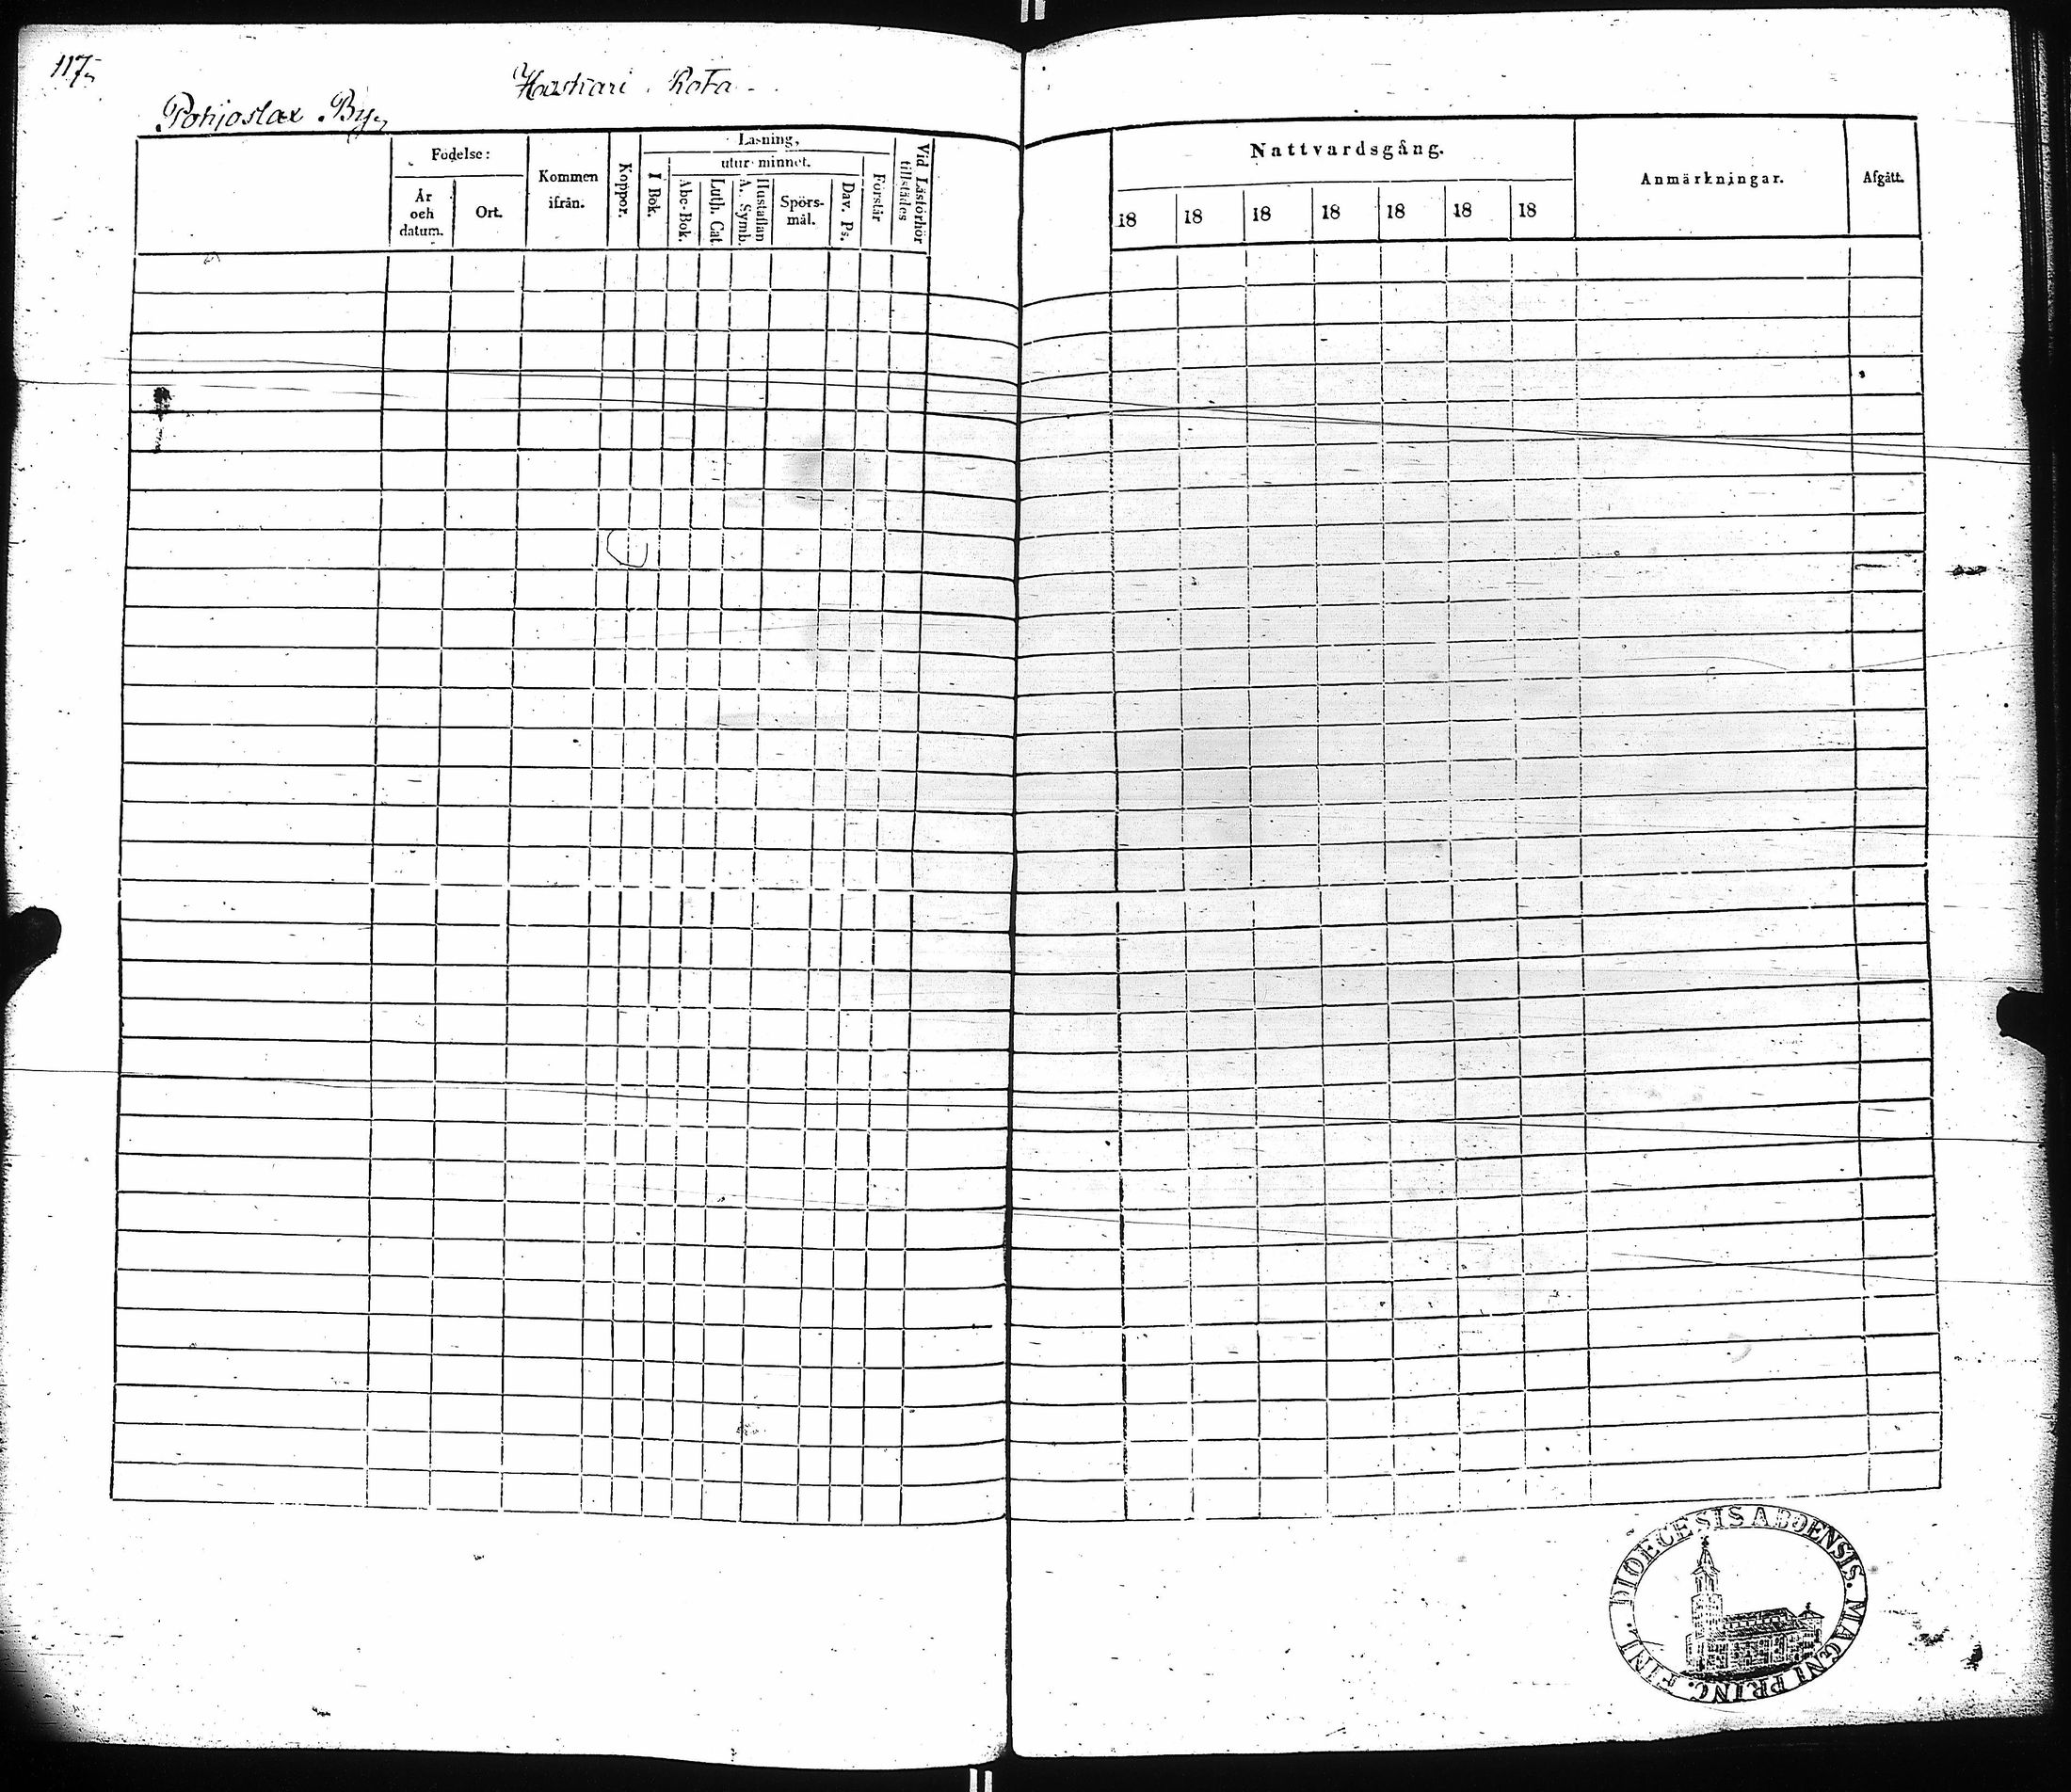 117.
Haskari Rota
Pohjoslax By,
Läsning,
Födelse:
utur minnet.
Kommen
ifrån.
Koppor.
I Bok.
Abc-Bok.
Luth. Cat.
Hustaflan
A. Symb.
Spörs-
mål.
Dav. Ps.
Förstår
Vid Läsförhör
tillstädes
År
och
datum.
Ort.
Nattvardsgång.
Anmärkningar.
Afgått.
18 18 18 18 18 18 18
DIOECESIS ABOENSIS. MAGNI PRINC. FINL.